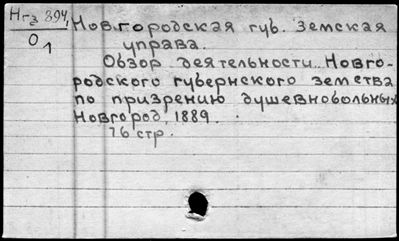 Нгз 894,
0 1
Новгородская губ. земская
управа.
Обзор деятельности Новго-
родского губернского земства
по призрению душевнобольных
Новгород, 1889.
76 стр.